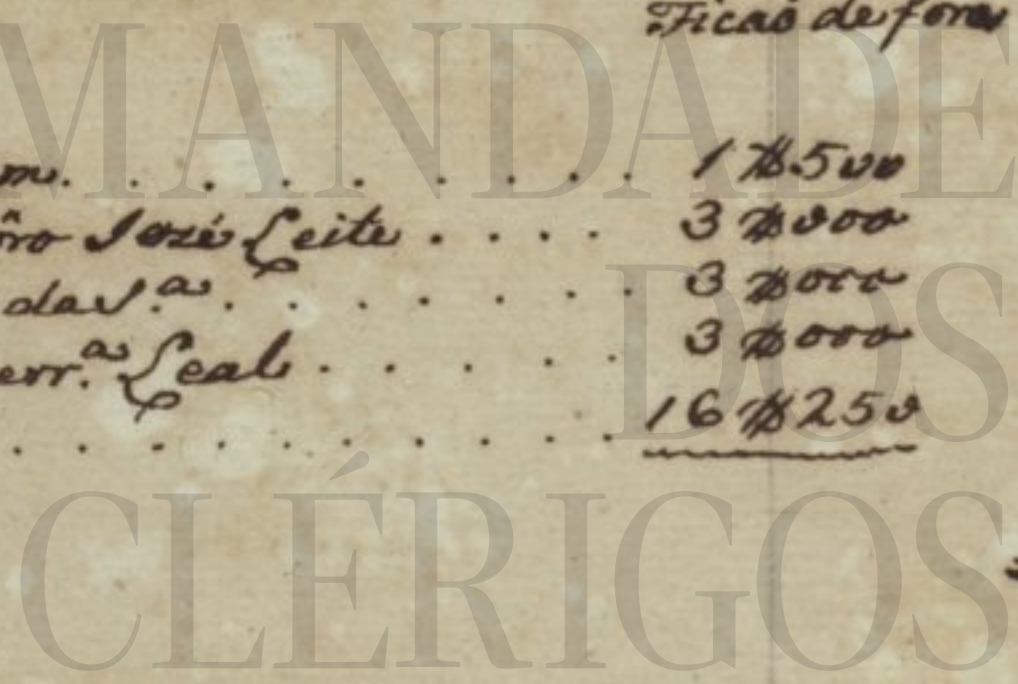 Ficaõ de fora
m. . . . . . . . . 1$500
ro Jozé Leite . . . . 3$000
da S.ª . . . . . . . 3$000
err.ª Leal . . . . . . 3$000
. . . . . . . . . 16$250
MANDADE
DOS
CLÉRIGOS